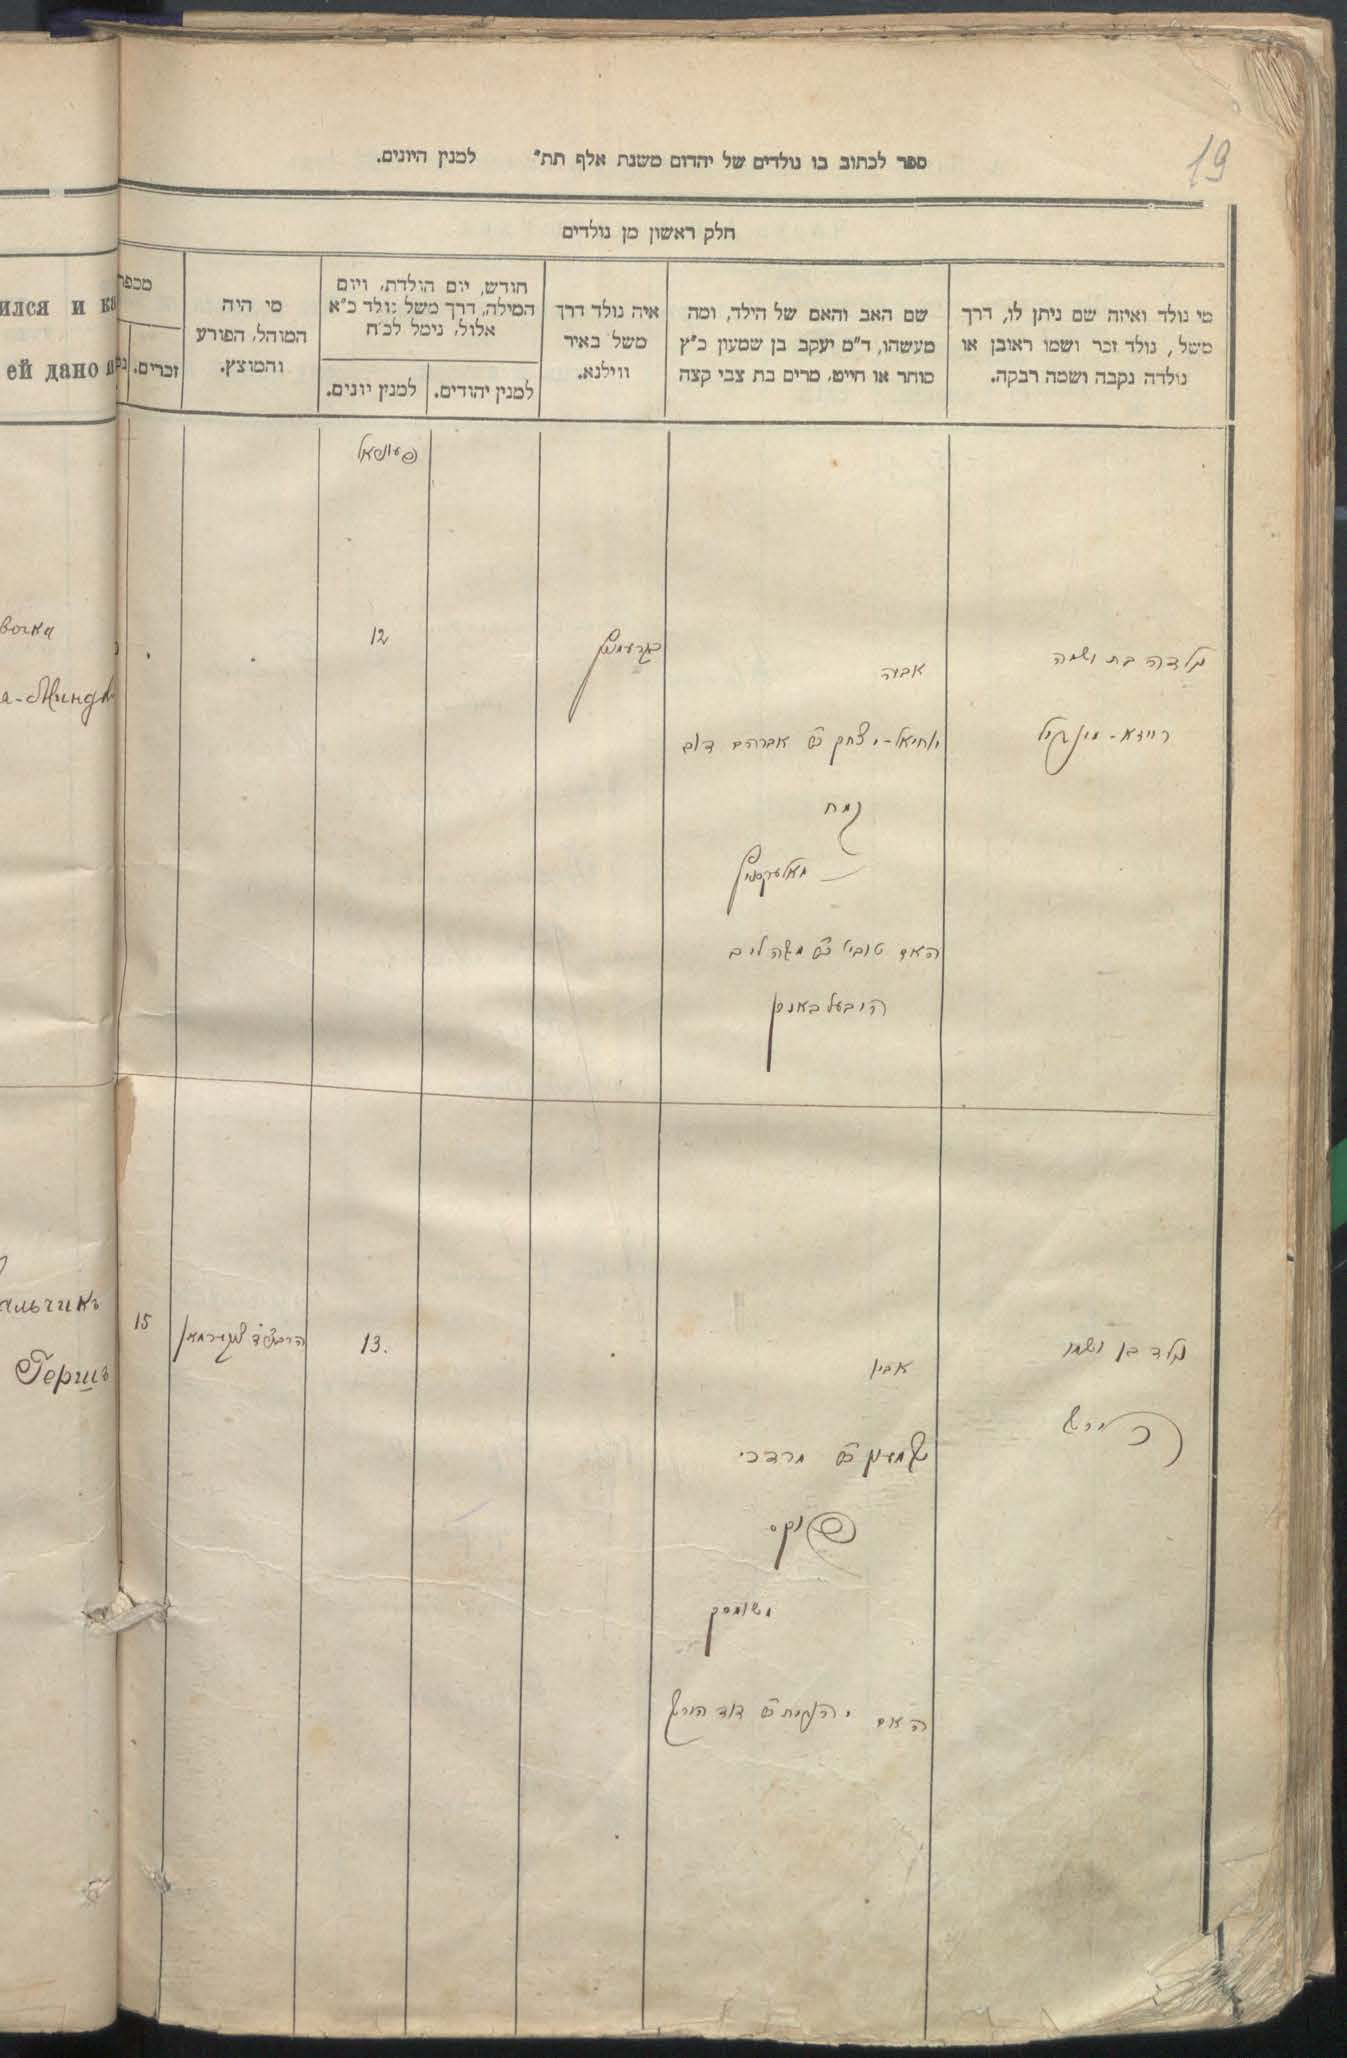 19
ספר לכתוב בו נולדים של יהדום משנת אלף תת״ למנין היונים.
חלק ראשון מן נולדים
מי נולד ואיזה שם ניתן לו, דרך
משל, נולד זכר ושמו ראובן או
נולדה נקבה ושמה רבקה.
שם האב והאם של הילד, ומה
מעשהו, ד״מ יעקב בן שמעון כ״ץ
סוחר או חייט, מרים בת צבי קצה
איה נולד דרך
משל באיר
ווילנא.
חודש, יום הולדת, ויום
המילה, דרך משל נולד כ״א
אלול, נימל לכ״ח
למנין יהודים.
למנין יונים.
מי היה
המוהל, הפורע
והמוצץ.
מספר
זכרים.
ился и ка
ей дано и
נולדה בת ושמה
רייזא - מינדיל
אביה
יחיאל - יצחק ב״ר אברהם דוב
האם טובי
12
вочка
а-Минд
נולד בן ושמו
הירש
אביו
שמעון ב״ר מרדכי
פוקס
האם
דוד הירש
13.
15
альчикъ
Гершъ